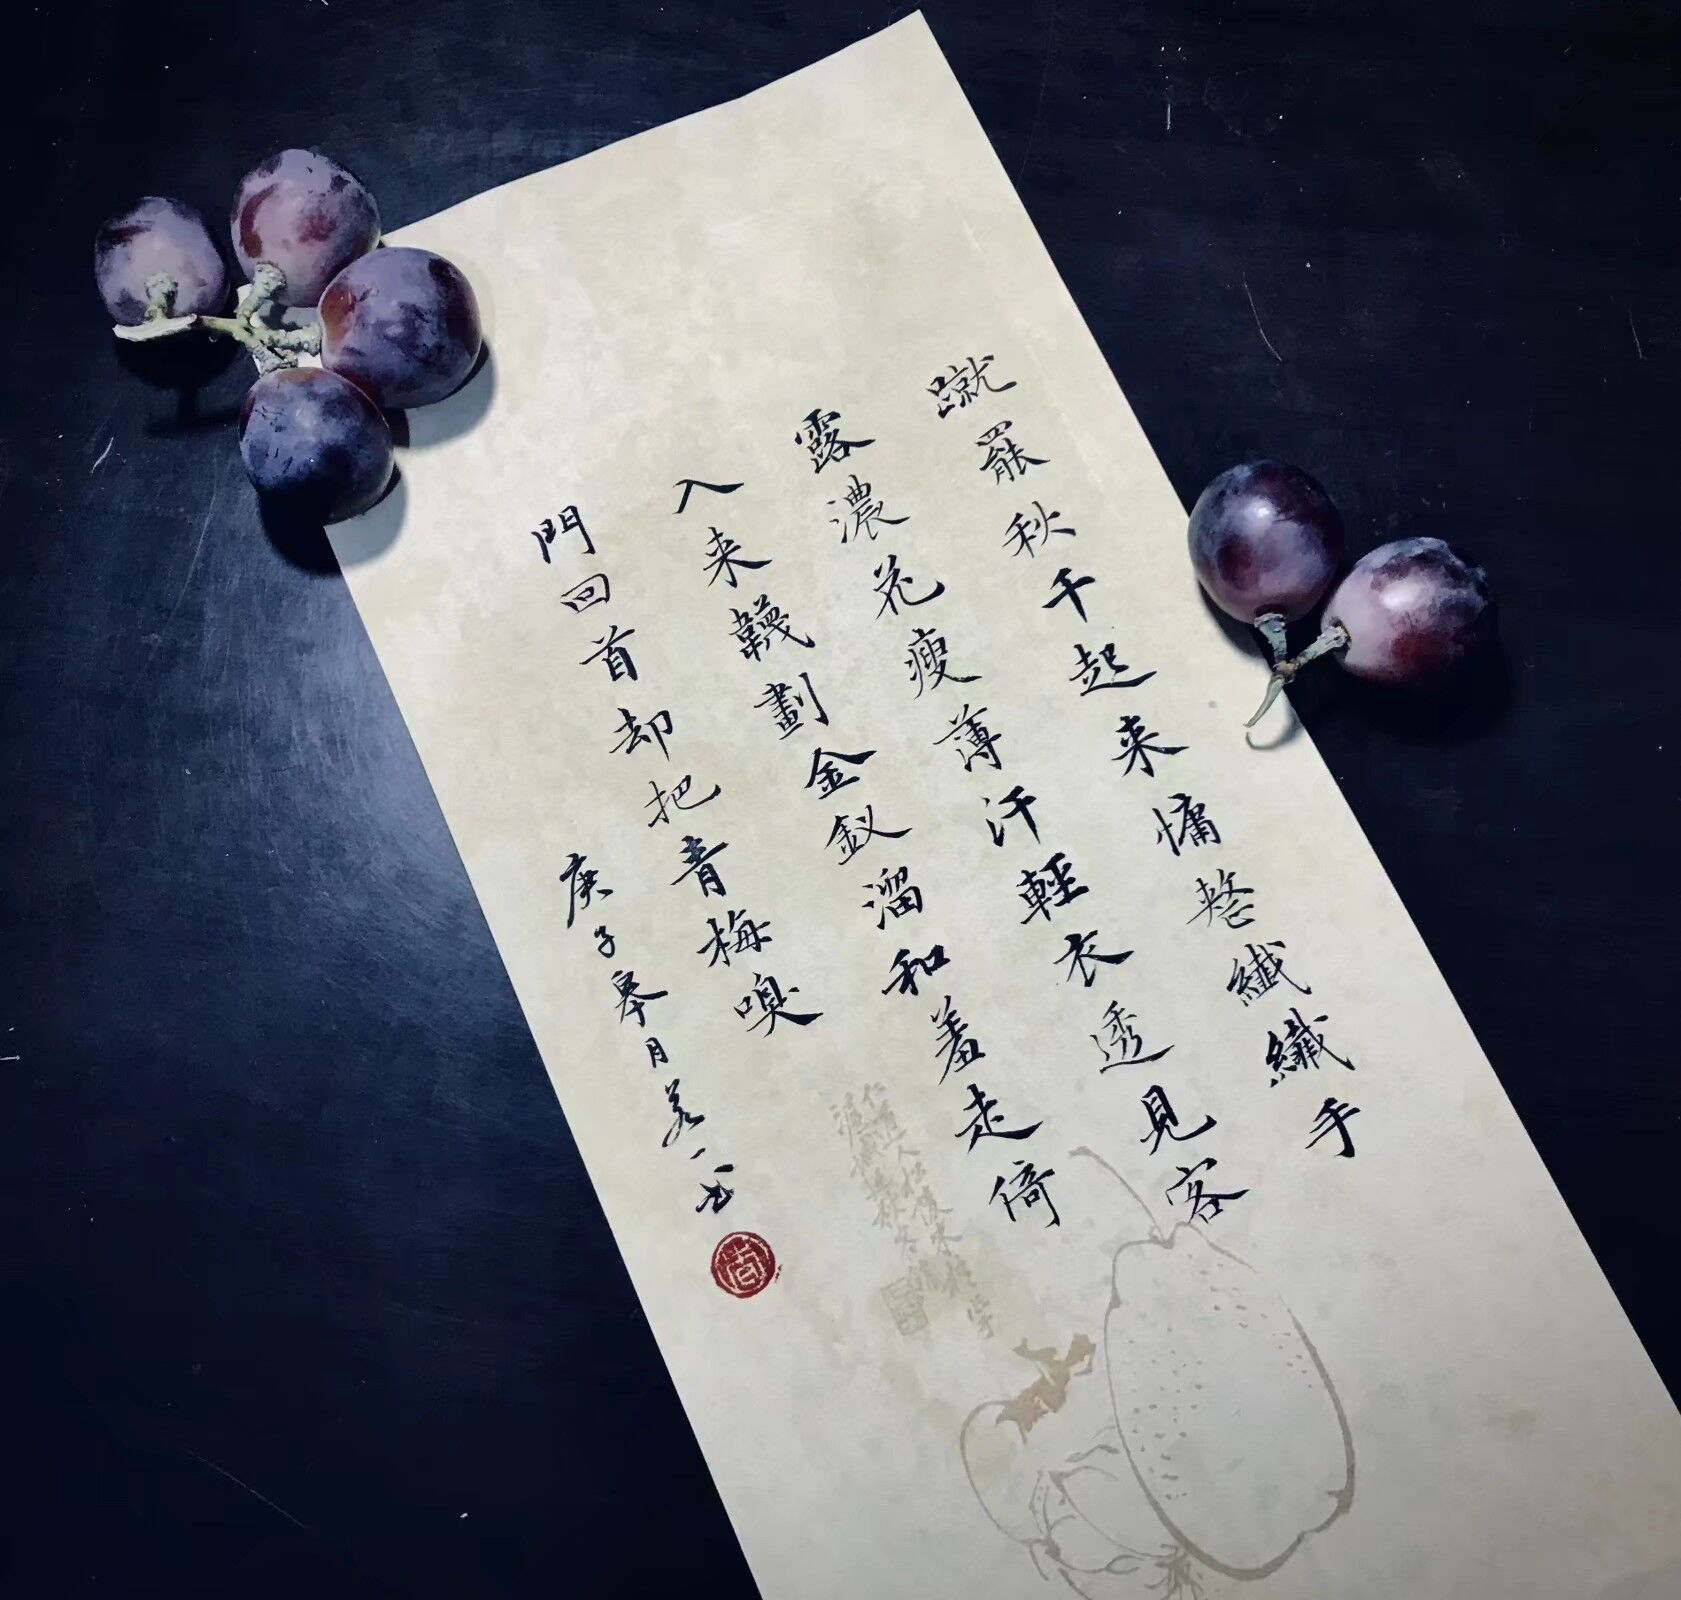 蹴罷秋千起来慵整纖纖手
露濃花瘦薄汗輕衣透見客
入来韈劃金釵溜和羞走倚
門回首却把青梅嗅
庚子皋月